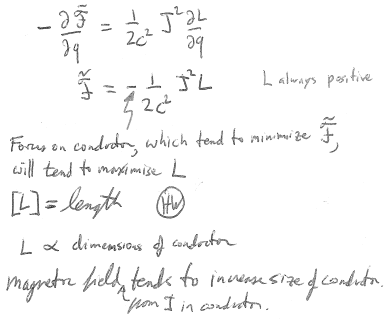 - ∂𝓕̃/∂q = 1/2c² J² ∂L/∂q
𝓕̃ = - 1/2c² J² L   L always positive
Forces on conductor, which tend to minimize 𝓕̃,
will tend to maximise L
[L] = length   HW
L ∝ dimensions of conductor
magnetic field tends to increase size of conductor.
^ from I in conductor.